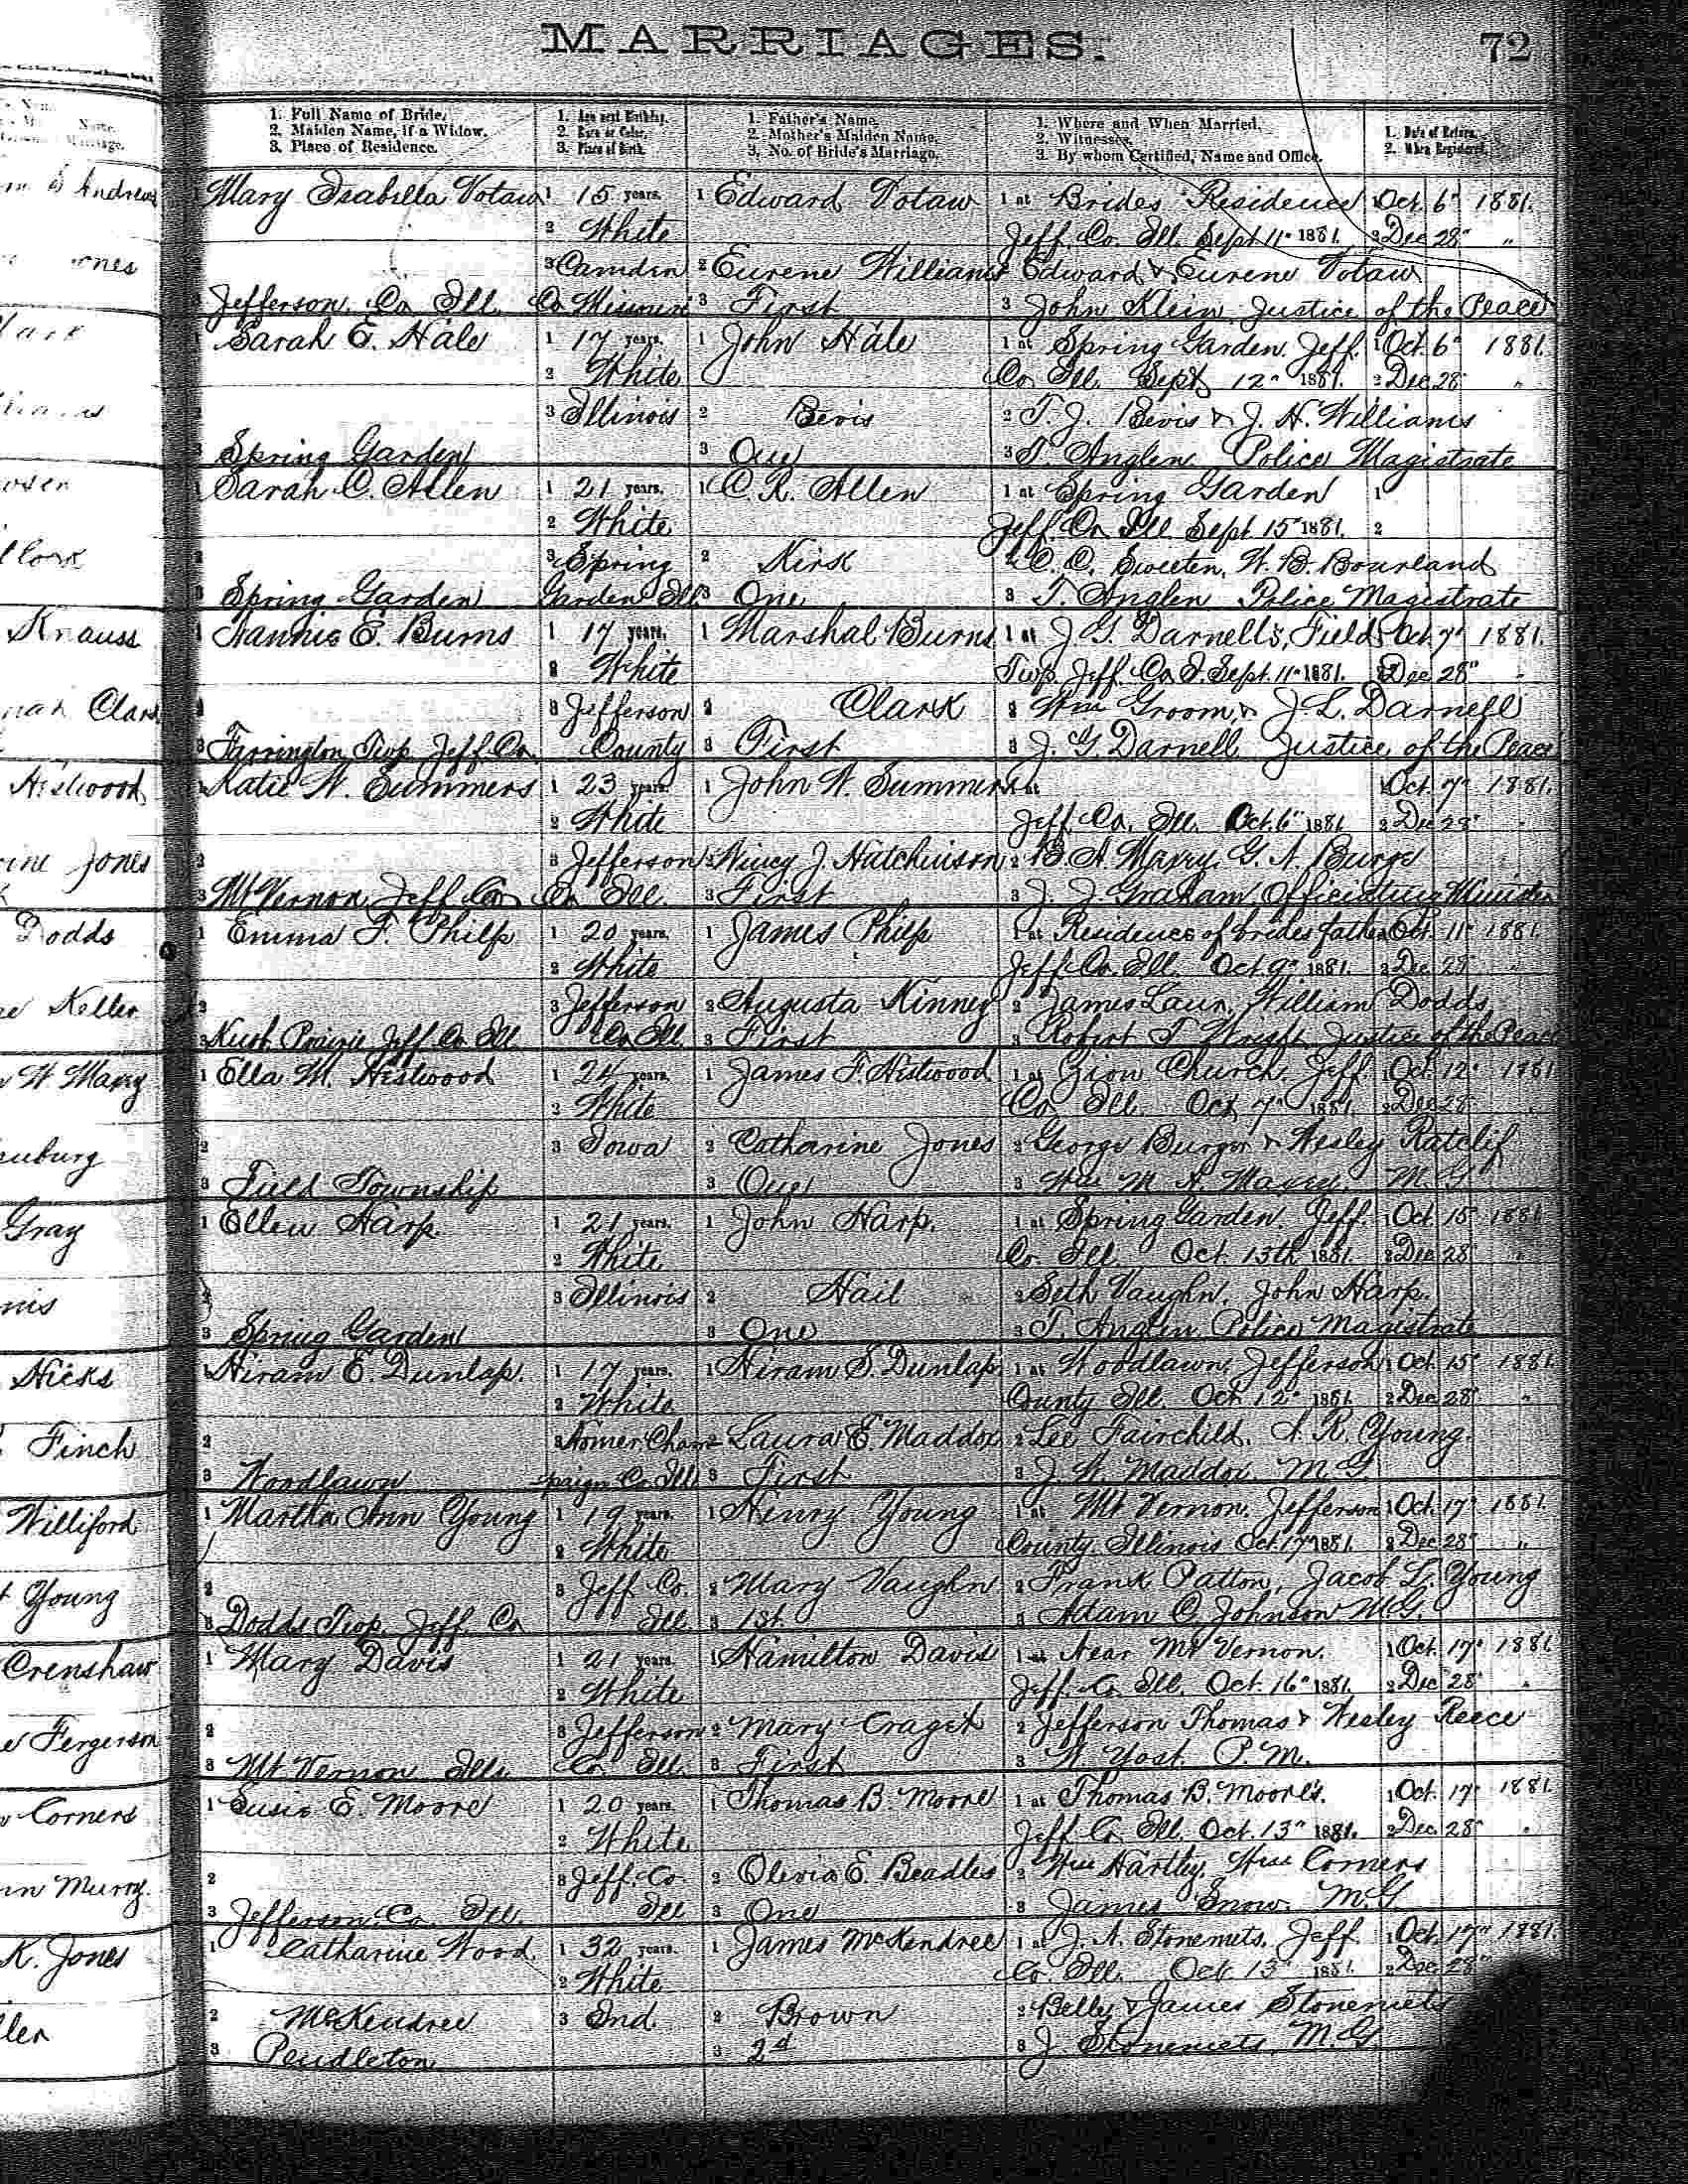 MARRIAGES.
72
1. Full Name of Bride.
2. Maiden Name, if a Widow.
3. Place of Residence.
1. Age next Birthday.
2. Race or Color.
3. Place of Birth.
1. Father's Name.
2. Mother's Maiden Name.
3. No. of Bride's Marriage.
1. Where and When Married.
2. Witnesses.
3. By whom Certified, Name and Office.
1. Date of Return.
2. When Registered.
1 Mary Isabella Votaw 1 15 years. 1 Edward Votaw 1 at Brides Residence 1 Oct. 6" 1881.
2 White Jeff. Co. Ill. Sept 11" 1881. 2 Dec 28" "
3 Camden 2 Eurene Williams 2 Edward & Eurene Votaw
3 Jefferson Co Ill. Co Missouri 3 First 3 John Klein Justice of the Peace
1 Sarah E. Hale 1 17 years. 1 John Hale 1 at Spring Garden. Jeff. 1 Oct. 6" 1881.
2 White Co Ill Sept 12" 1881. 2 Dec 28" "
2 3 Illinois 2 Bevis 2 T. J. Bevis & J. H. Williams
3 Spring Garden 3 One 3 T. Anglen Police Magistrate
1 Sarah C. Allen 1 21 years. 1 C. R. Allen 1 at Spring Garden 1
2 White Jeff. Co Ill Sept 15" 1881. 2
2 3 Spring 2 Kirk 2 C. C. Sweeten, W. B. Bourland
3 Spring Garden Garden Ill. 3 One 3 T. Anglen Police Magistrate
1 Nannie E. Burns 1 17 years. 1 Marshal Burns 1 at J. G. Darnell's, Field 1 Oct. 7" 1881.
2 White Twp. Jeff. Co I. Sept. 11" 1881. 2 Dec 28" "
2 3 Jefferson 2 Clark 2 Wm Groom, & J. L. Darnell
3 Farrington Twp. Jeff. Co. County 3 First 3 J. G. Darnell Justice of the Peace
1 Katie W. Summers 1 23 years. 1 John W. Summers 1 at 1 Oct. 7" 1881.
2 White Jeff. Co. Ill. Oct. 6" 1881 2 Dec 28" "
2 3 Jefferson 2 Nincy J. Hutchinson 2 B. A. Maxey. G. A. Burge
3 Mt Vernon, Jeff. Co Co Ill. 3 First 3 J. J. Graham, Officiating Minister
1 Emma F. Philp 1 20 years. 1 James Philp 1 at Residence of brides father 1 Oct. 11" 1881.
2 White Jeff. Co. Ill. Oct 9" 1881. 2 Dec. 28" "
2 3 Jefferson 2 Augusta Kinney 2 James Laur, William Dodds
3 Prairie Jeff. Co. Ill Co Ill. 3 First 3 Robert T. Wright Justice of the Peace
1 Ella M. Hestwood 1 24 years. 1 James F. Hestwood 1 at Zion Church, Jeff. 1 Oct. 12" 1881
2 White Co Ill Oct 7" 1881. 2 Dec 28" "
2 3 Iowa 2 Catharine Jones 2 George Burger & Wesley Ratclif
3 Field Township 3 One 3 Wm M A Maxey M. G
1 Ellen Harp. 1 21 years. 1 John Harp. 1 at Spring Garden. Jeff. 1 Oct. 15" 1881
2 White Co. Ill. Oct. 13th 1881. 2 Dec. 28" "
2 3 Illinois 2 Hail 2 Seth Vaughn. John Harp.
3 Spring Garden 3 One 3 T. Anglen Police Magistrate
1 Hiram E. Dunlap. 1 17 years. 1 Hiram S. Dunlap. 1 at Woodlawn, Jefferson 1 Oct. 15" 1881.
2 White County Ill. Oct 12" 1881. 2 Dec 28" "
2 3 Homer Cham 2 Laura E. Maddox 2 Lee Fairchild. A. R. Young.
3 Woodlawn paign Co Ill 3 First 3 J. W. Maddox M. G
1 Martha Ann Young 1 19 years. 1 Henry Young 1 at Mt Vernon, Jefferson 1 Oct. 17" 1881.
2 White County. Illinois Oct. 17" 1881. 2 Dec 28" "
2 3 Jeff. Co. 2 Mary Vaughn 2 Frank Patton, Jacob L. Young
3 Dodds Twp. Jeff. Co Ill. 3 1st. 3 Adam C. Johnson M.G.
1 Mary Davis 1 21 years. 1 Hamilton Davis 1 at Near Mt Vernon. 1 Oct. 17" 1881
2 White Jeff. Co. Ill. Oct. 16" 1881. 2 Dec 28" "
2 3 Jefferson 2 Mary Craget 2 Jefferson Thomas & Wesley Reece
3 Mt Vernon Ills. Co. Ill. 3 First 3 W. Yost. P. M.
1 Susie E. Moore 1 20 years. 1 Thomas B. Moore 1 at Thomas B. Moore's. 1 Oct. 17" 1881.
2 White Jeff. Co. Ill. Oct. 13" 1881. 2 Dec. 28" "
2 3 Jeff. Co. 2 Olevia E. Beadles 2 Wm Hartley, Wm Corners
3 Jefferson Co. Ill. Ill 3 One 3 James Snow. M. G
1 Catharine Wood. 1 32 years. 1 James McKendree 1 at J. A. Stonemets. Jeff. 1 Oct. 17" 1881.
2 White Co. Ill. Oct 13" 1881. 2 Dec 28"
2 McKendree 3 Ind. 2 Brown 2 Belle & James Stonemets
3 Pendleton 3 2d 3 J. Stonemets, M. G.
Andrews
Knauss
Clark
Hestwood
Jones
Dodds
Keller
W Maxey
Gray
Hicks
Finch
Williford
Young
Crenshaw
Fergerson
Corners
Murry.
K. Jones